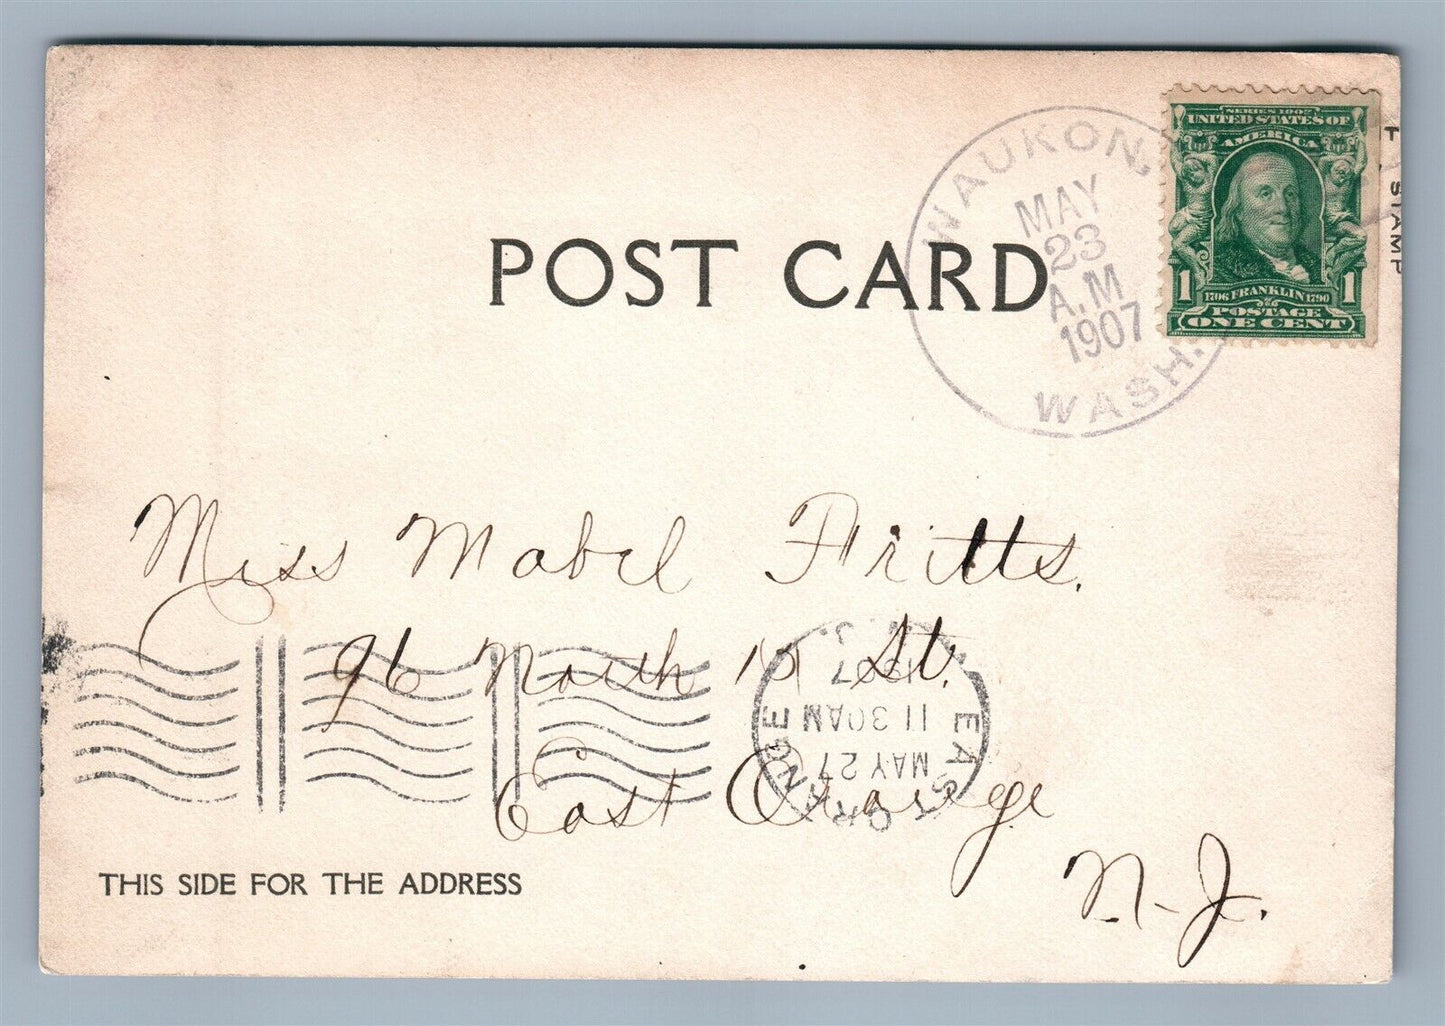 POST CARD
WAUKON,
MAY
23
A.M
1907
WASH.
SERIES 1902
UNITED STATES OF
AMERICA
1 1706 FRANKLIN 1790 1
POSTAGE
ONE CENT
STAMP
Miss Mabel Fritts.
96 North 15 St.
East Orange
N-J.
EAST ORANGE
N. J.
MAY 27
11 30 AM
1907
THIS SIDE FOR THE ADDRESS